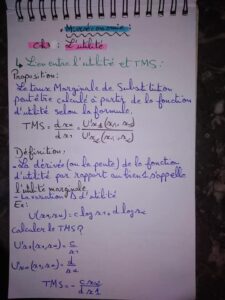 Microéconomie
Ch3 : L'utilité
↳ Lien entre l'utilité et TMS :
Proposition :
Le taux Marginale de Substitution
peut être calculé à partir de la fonction
d'utilité selon la formule.
TMS = dx2/dx1 = U'x1(x1,x2)/U'x2(x1,x2)
Définition :
- La dérivée (ou la pente) de la fonction
d'utilité par rapport au bien 1 s'appelle
l'utilité marginale.
- La variation d'utilité
Ex :
U(x1,x2) = c log x1 + d log x2
calculer le TMS ?
U'x1(x1,x2) = c/x1
U'x2(x1,x2) = d/x2
TMS = - cx2/dx1